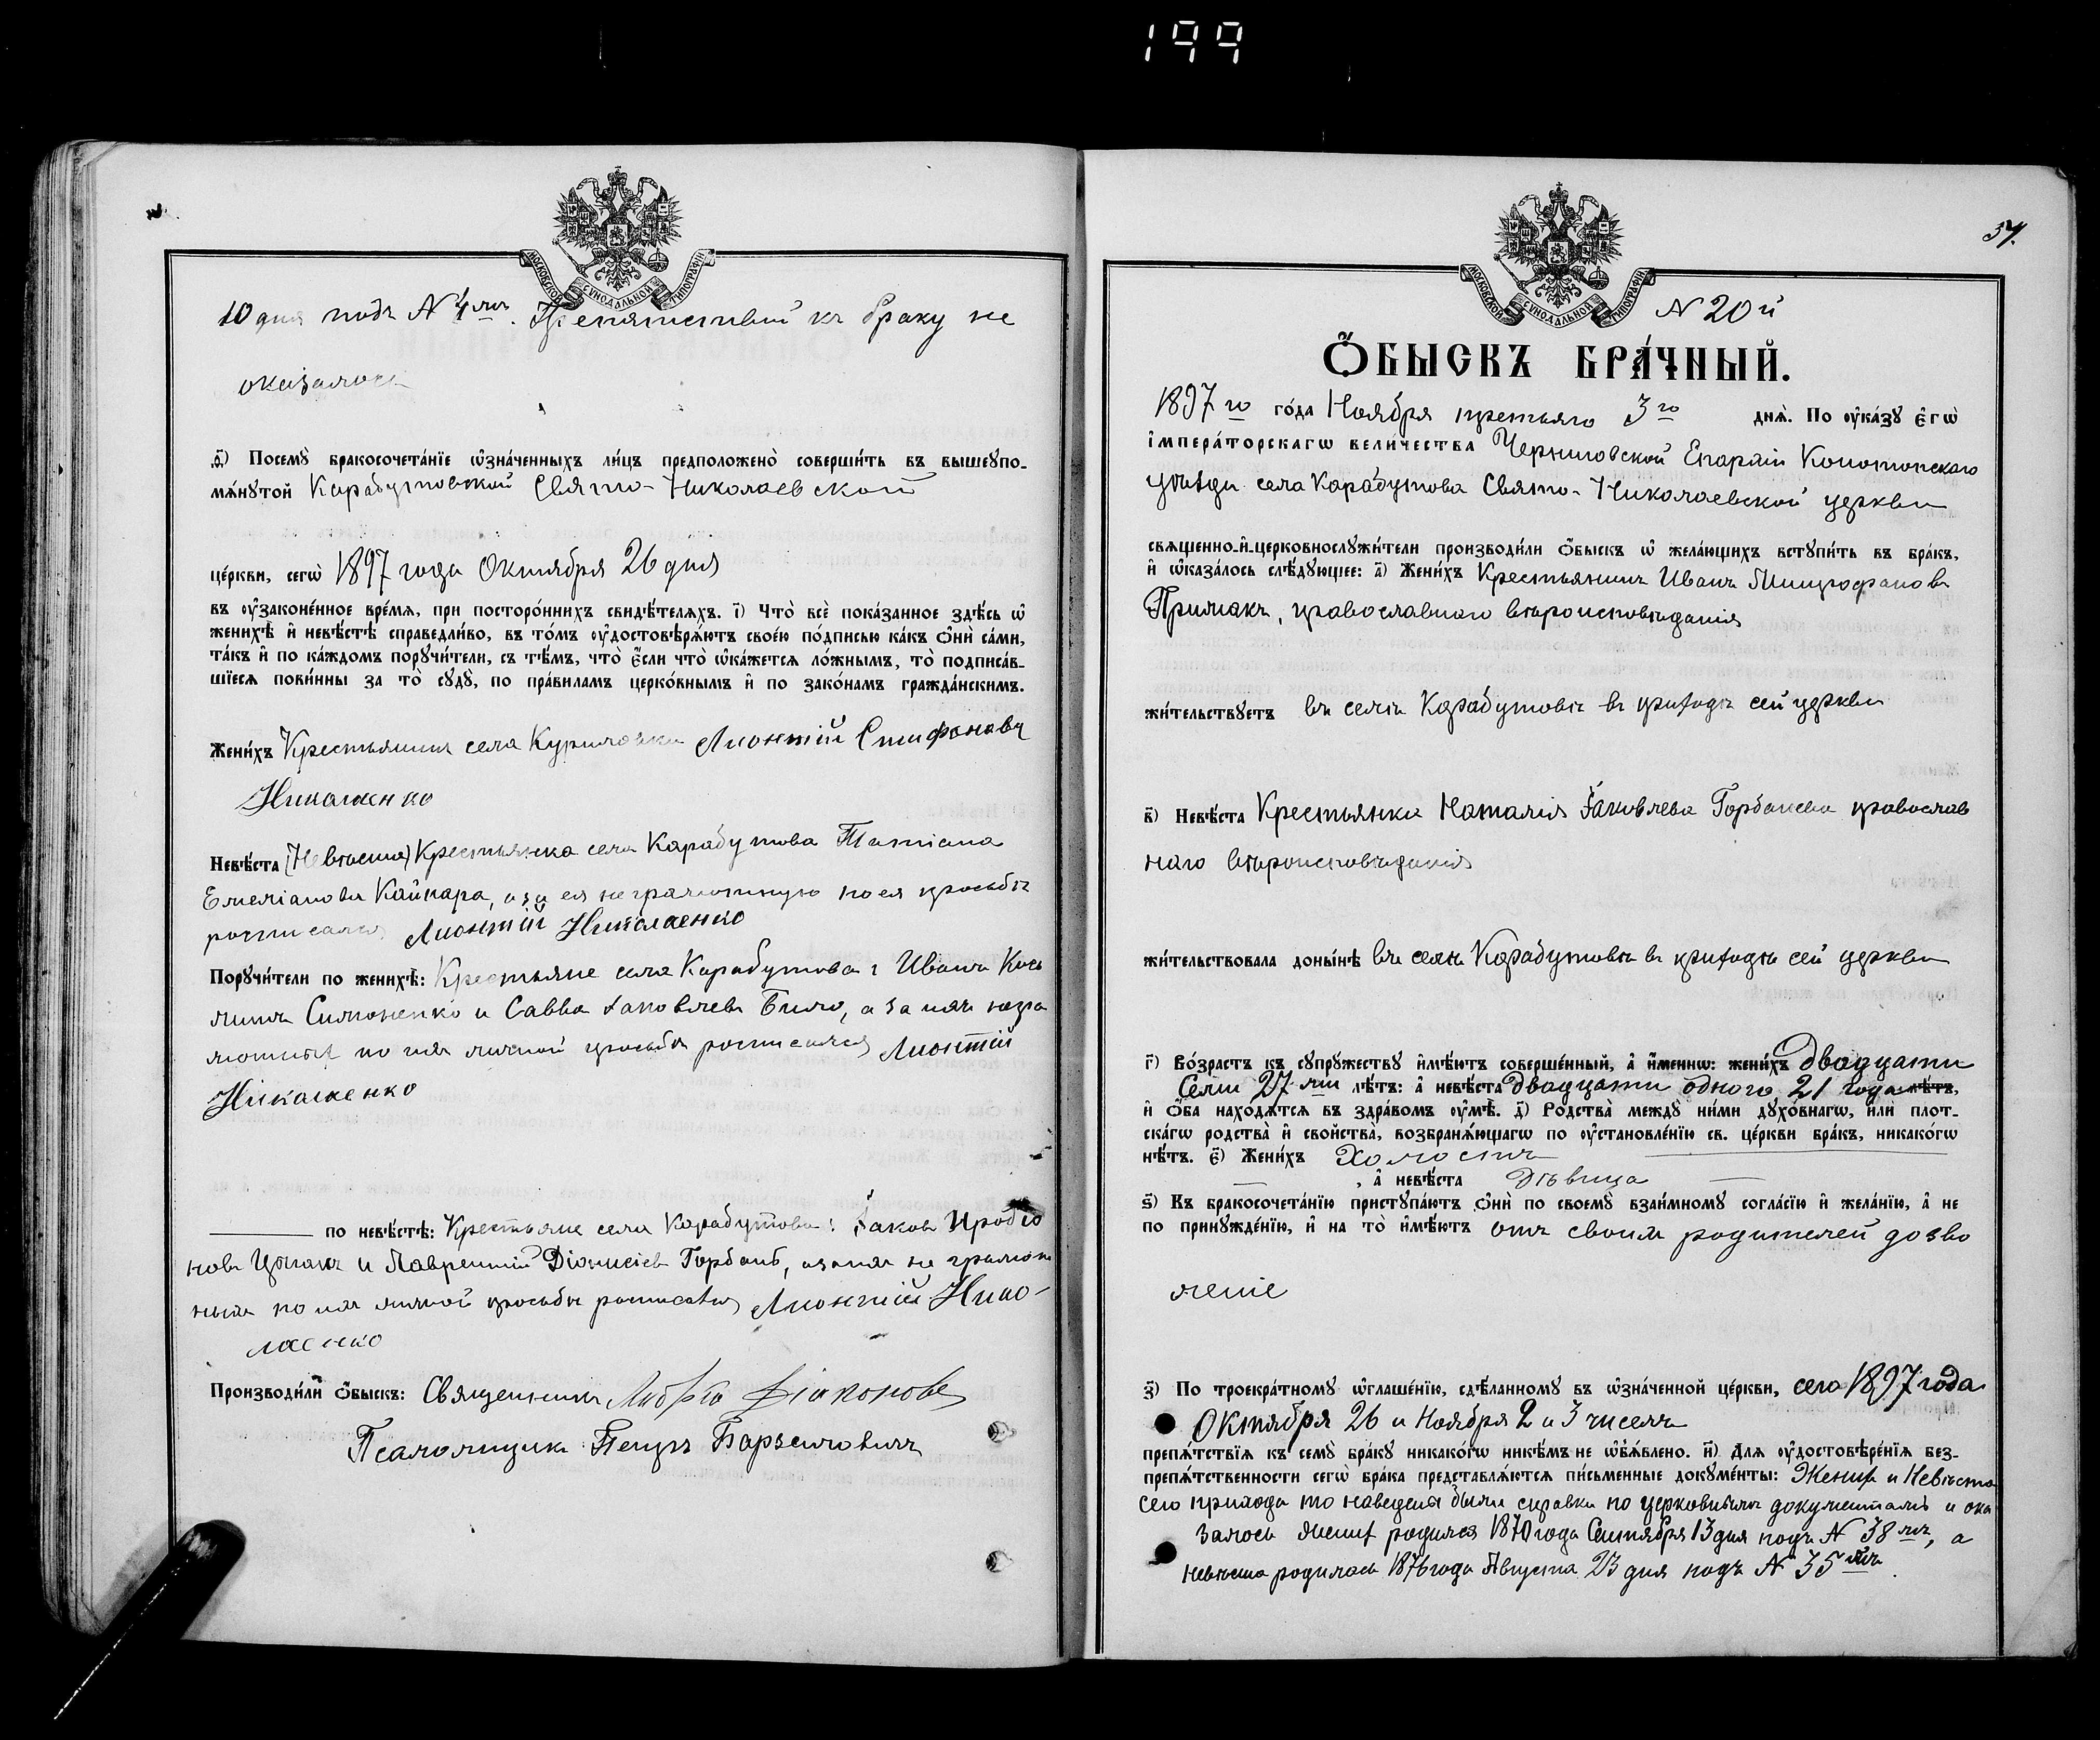 199
МОСКОВСКОЙ СУНОДАЛЬНОЙ ТИПОГРАФІИ
10 дня подъ N 4мъ. Препятствій къ браку не
оказалось
Ѳ҃) Посемꙋ̀ бракосочета́нїе ѡ҆зна́ченныхъ ли́цъ предположено̀ соверши́ть въ вышеꙋпо-
мѧ́нꙋтой Карабутовской Свято-Николаевской
це́ркви, сегѡ̀ 1897 года Октября 26 дня
въ ᲂу҆зако́ненное вре́мѧ, при посторо́ннихъ свидѣ́телѧхъ. і҃) Что̀ всѐ пока́занное здѣ́сь ѡ҆
женихѣ̀ и҆ невѣ́стѣ справедли́во, въ то́мъ ᲂу҆достовѣрѧ́ютъ свое́ю по́дписью ка́къ ѻ҆нѝ са́ми,
та́къ и҆ по ка́ждомъ порꙋчи́тели, съ тѣ́мъ, что̀ є҆́сли что̀ ѡ҆ка́жетсѧ ло́жнымъ, то̀ подписа́в-
шїесѧ пови́нны за то̀ сꙋдꙋ̀, по пра́виламъ церко́внымъ и҆ по зако́намъ гражда́нскимъ.
Жени́хъ Крестьянинъ села Куриловки Лионтій Стифоновъ
Николаенко
Невѣ́ста (Невѣста) Крестьянка села Карабутова Татіана
Емеліанова Кайнара, а за ея неграмотную по ея просьбѣ
росписался Лионтій Николаенко
Порꙋчи́тели по женихѣ̀: Крестьяне села Карабутова: Иванъ Кось
минъ Симоненко и Савва Іаковлевъ Било, а за ихъ негра
мотныхъ по ихъ личной просьбѣ росписался Лионтій
Николаенко
по невѣ́стѣ: Крестьяне села Карабутова: Іаковъ Иродіо
новъ Цопакъ и Лаврентій Діонисіевъ Горбань, а за ихъ не грамот
ныхъ по ихъ личной просьбѣ росписался Лионтій Нико-
лаенко
Производи́ли ѻ҆́быскъ: Священникъ Діаконовъ
Псаломщикъ Петръ Барзиловичъ
37.
МОСКОВСКОЙ СУНОДАЛЬНОЙ ТИПОГРАФІИ
N 20й
Ѻ҆́БЫСКЪ БРА́ЧНЫЙ.
1897го го́да Ноября третьяго 3го днѧ̀. По ᲂу҆ка́зꙋ є҆гѡ̀
і҆мпера́торскагѡ вели́чества Черниговской Епархіи Конотопскаго
уѣзда села Карабутова Свято-Николаевской церкви
свѧще́нно-и҆-церковнослꙋжи́тели производи́ли ѻ҆́быскъ ѡ҆ жела́ющихъ встꙋпи́ть въ бра́къ,
и҆ ѡ҆каза́лось слѣ́дꙋющее: а҃) Жени́хъ Крестьянинъ Иванъ Митрофановъ
Примакъ, православнаго вѣроисповѣданія
жи́тельствꙋетъ въ селѣ Карабутовѣ въ приходѣ сей церкви
в҃) Невѣ́ста Крестьянка Наталія Іаковлева Горбанева православ
наго вѣроисповѣданія
жи́тельствовала доны́нѣ въ селѣ Карабутовѣ въ приходѣ сей церкви
г҃) Во́зрастъ къ сꙋпрꙋ́жествꙋ и҆мѣ́ютъ соверше́нный, а҆ и҆́меннѡ: жени́хъ двадцати
Семи 27ми лѣ́тъ: а҆ невѣ́ста двадцати одного 21 года лѣ́тъ,
и҆ ѻ҆́ба нахо́дѧтсѧ въ здра́вомъ ᲂу҆мѣ̀. д҃) Родства̀ междꙋ̀ ни́ми дꙋхо́внагѡ, и҆лѝ плот-
ска́гѡ родства̀ и҆ свойства̀, возбранѧ́ющагѡ по ᲂу҆становле́нїю св. це́ркви бра́къ, никако́гѡ
нѣ́тъ. є҃) Жени́хъ Холостъ
, а҆ невѣ́ста Дѣвица
ѕ҃) Къ бракосочета́нїю пристꙋпа́ютъ ѻ҆нѝ по своемꙋ̀ взаи́мномꙋ согла́сїю и҆ жела́нїю, а҆ не
по принꙋжде́нїю, и҆ на то̀ и҆мѣ́ютъ отъ своихъ родителей дозво
леніе
з҃) По троекра́тномꙋ ѡ҆глаше́нїю, сдѣ́ланномꙋ въ ѡ҆зна́ченной це́ркви, сего 1897 года
Октября 26 и Ноября 2 и 3 чиселъ
препѧ́тствїѧ къ семꙋ̀ бра́кꙋ никако́гѡ никѣ́мъ не ѡ҆б̾ѧ́влено. и҃) Длѧ ᲂу҆достовѣре́нїѧ без-
препѧ́тственности сегѡ̀ бра́ка представлѧ́ютсѧ пи́сьменные докꙋме́нты: Женихъ и Невѣста
сего прихода то наведена были справка по церковнымъ документамъ и ока
залось женихъ родился 1870 года Сентября 13 дня подъ N 38мъ, а
невѣста родилась 1876 года Августа 23 дня подъ N 35мъ.